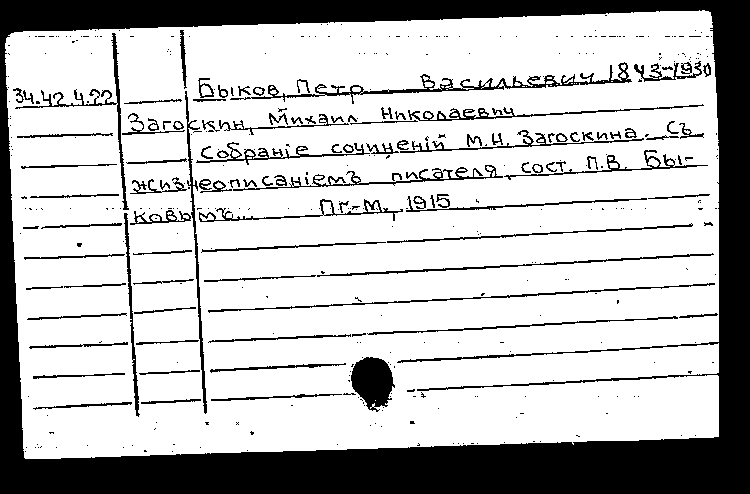 34.42.4.22 Быков, Петр Васильевич 1843-1930
Загоскин, Михаил Николаевич
Собраніе сочиненій М.Н. Загоскина. Съ
жизнеописаніемъ писателя, сост. П.В. Бы-
ковымъ... Пг.-М., 1915